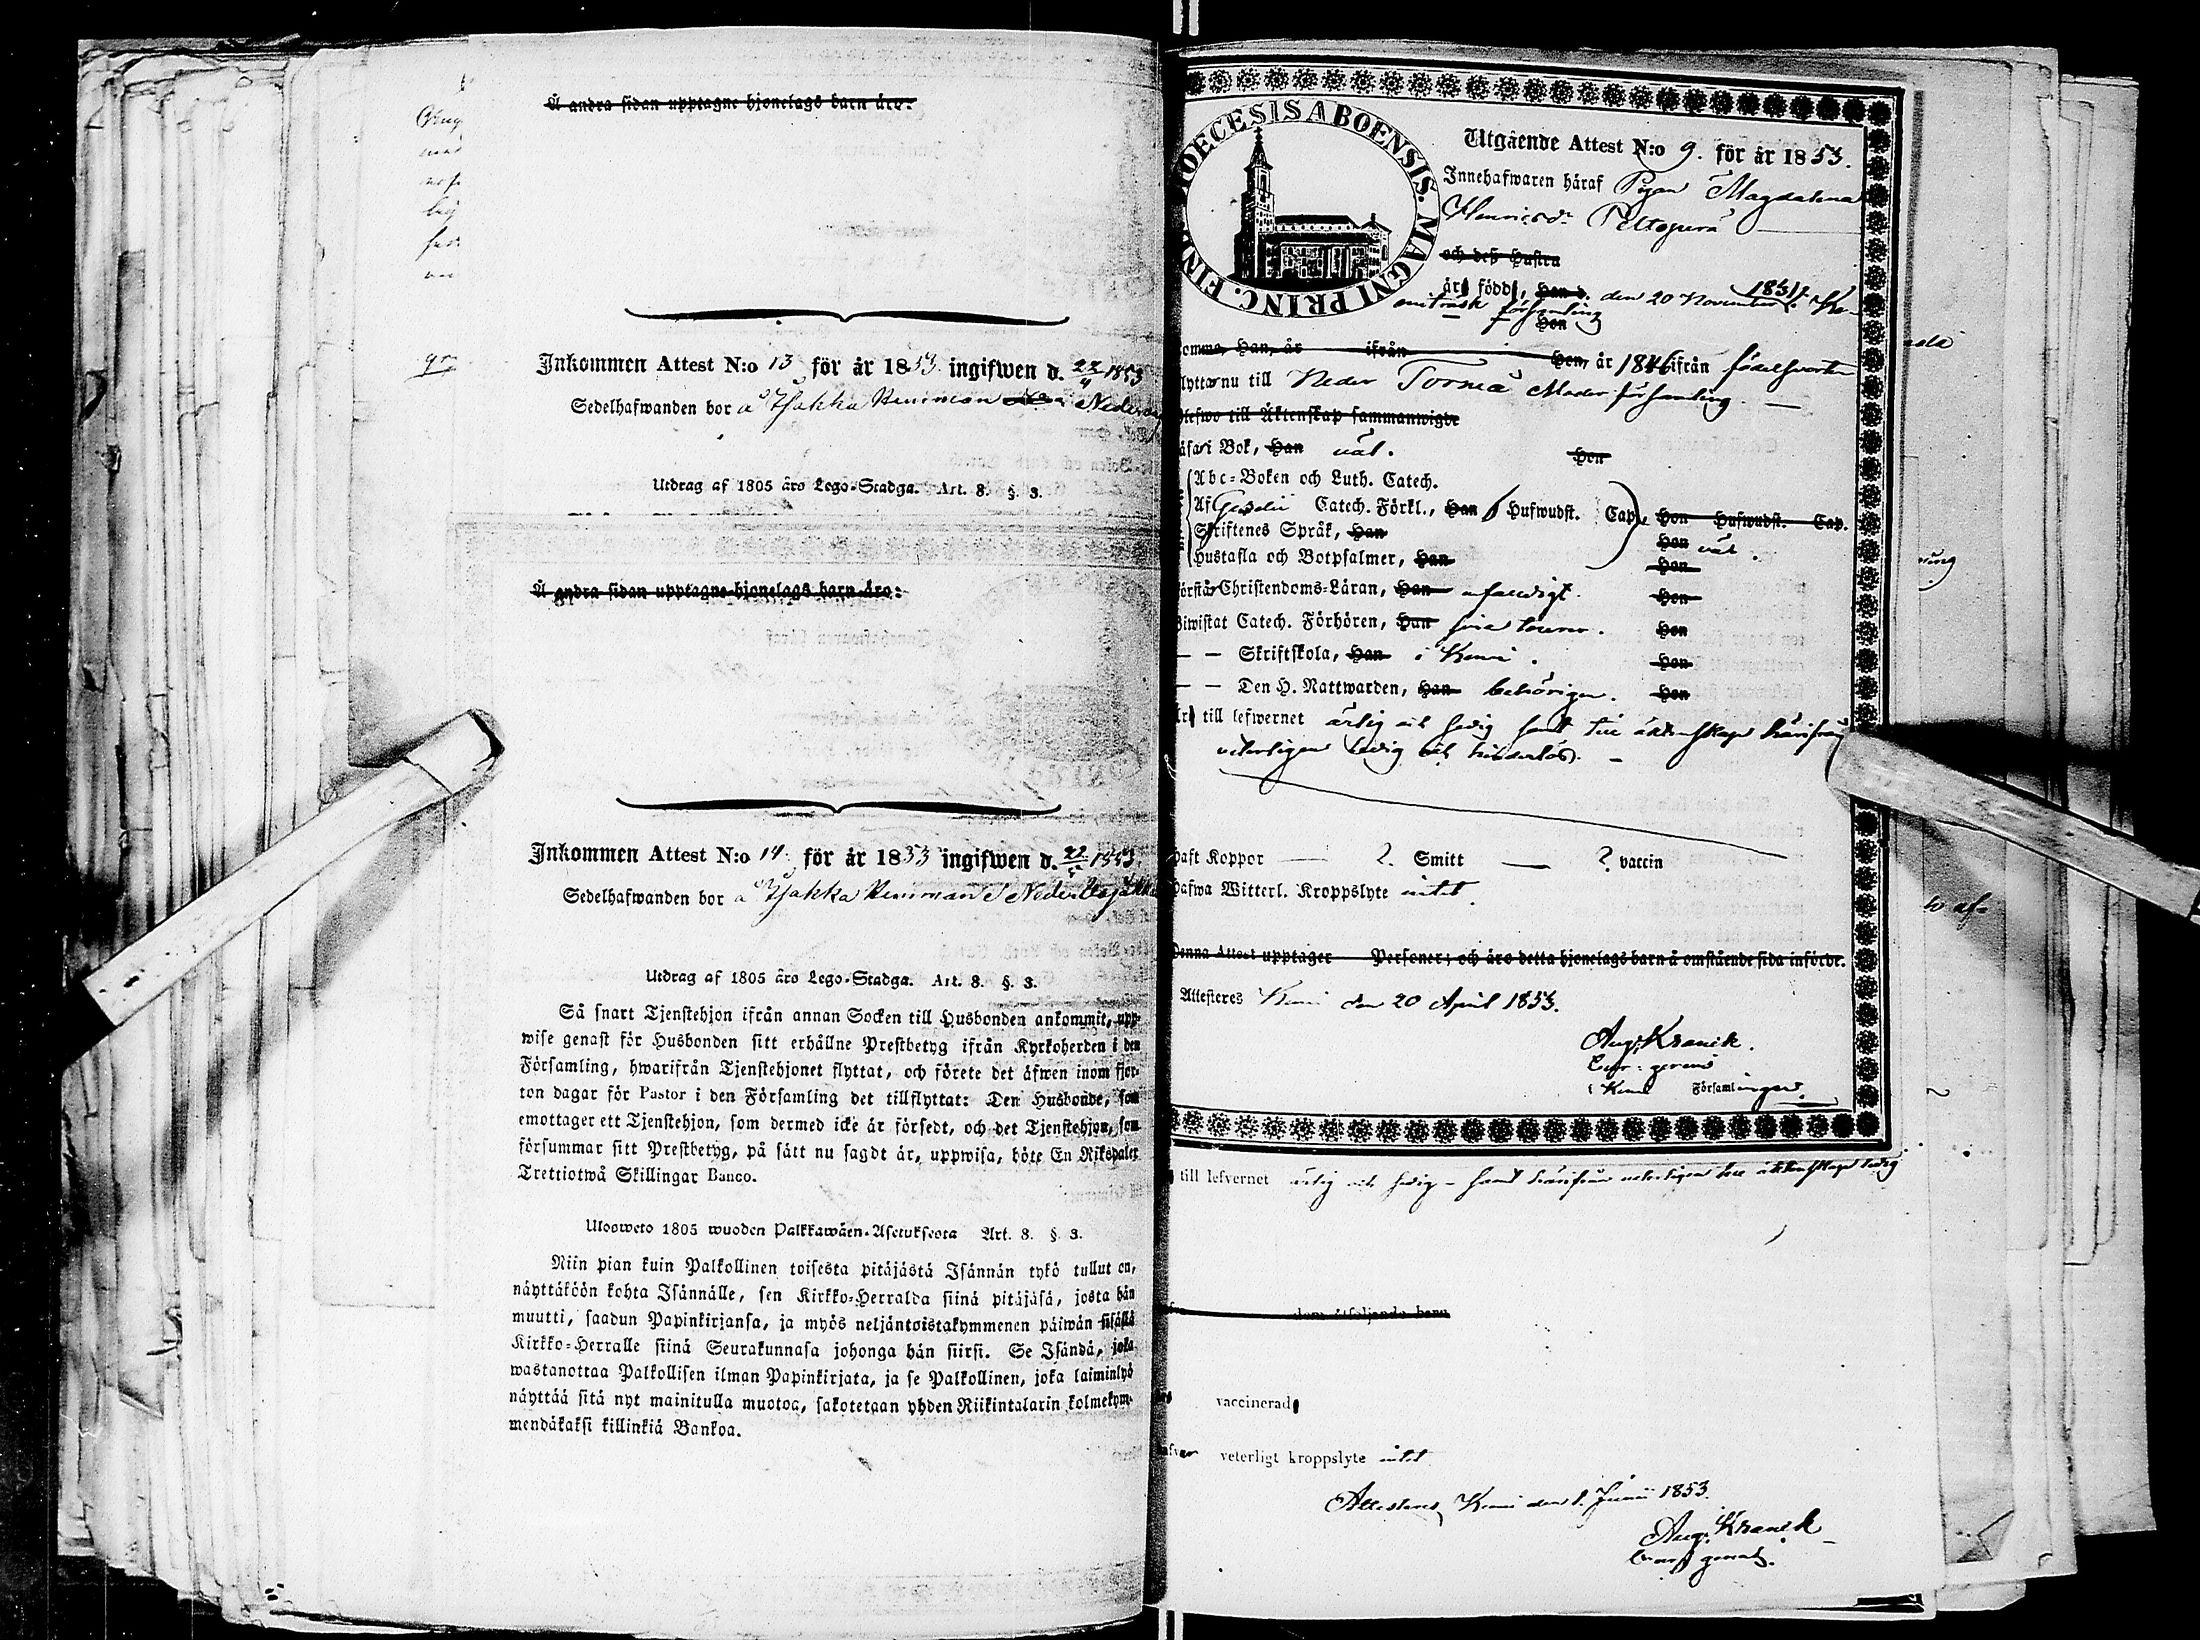 Å andra sidan upptagne hjonelags barn äro:
Inkommen Attest N:o 13 för år 1853 ingifwen d. 22/4 1853
Sedelhafwanden bor å
Utdrag af 1805 års Lego-Stadga. Art. 8. §. 3.
Å andra sidan upptagne hjonelags barn äro:
Inkommen Attest N:o 14 för år 1853 ingifwen d. 1853
Sedelhafwanden bor å
Utdrag af 1805 års Lego-Stadga. Art. 8. §. 3.
Så snart Tjenstehjon ifrån annan Socken till Husbonden ankommit, upp-
wise genast för Husbonden sitt erhållne Prestbetyg ifrån Kyrkoherden i den
Församling, hwarifrån Tjenstehjonet flyttat, och förete det äfwen inom fjor-
ton dagar för Pastor i den Församling det tillflyttat: Den Husbonde, som
emottager ett Tjenstehjon, som dermed icke är försedt, och det Tjenstehjon, som
försummar sitt Prestbetyg, på sätt nu sagdt är, uppwisa, böte En Riksdaler
Trettiotwå Skillingar Banco.
Ulosweto 1805 wuoden Palkkawäen-Asetuksesta Art. 8. §. 3.
Niin pian kuin Palkollinen toisesta pitäjästä Isännän tykö tullut on,
näyttäköön kohta Isännälle, sen Kirkko-Herralda siinä pitäjäsä, josta hän
muutti, saadun Papinkirjansa, ja myös neljäntoistakymmenen päiwän sisällä
Kirkko-Herralle siinä Seurakunnasa johonga hän siirsi. Se Isändä, joka
wastanottaa Palkollisen ilman Papinkirjata, ja se Palkollinen, joka laiminlyö
näyttää sitä nyt mainitulla muotoa, sakotetaan yhden Riikintalarin kolmekym-
mendäkaksi killinkiä Bankoa.
DIOECESIS ABOENSIS. MAGNI PRINC. FINL.
Utgående Attest N:o 9. för år 1853.
Innehafwaren häraf Pigan Magdalena
Henricsdr Peltoperä
och deß Hustru
född, Han d. den 20 November Ke-
miträsk församling
Hon
komne, Han, år ifrån Hon, år 1846 ifrån födelseorten
flyttar nu till Neder Torneå Moder församling.
Blefwo till Äktenskap sammanwigde
läsa i Bok, Han väl. Hon
Abc-Boken och Luth. Catech.
Af Gezelii Catech. Förkl., Han Hufwudst. Cap. Hon Hufwudst. Cap.
Skriftenes Språk, Han Hon väl.
Hustafla och Botpsalmer, Han Hon
Förstår Christendoms-Läran, Han enfaldigt. Hon
Biwistat Catech. Förhören, Han Hon
— — Skriftskola, Han i Kemi. Hon
— — Den H. Nattwarden, Han behörigen. Hon
till lefwernet ärlig och sedig samt till äktenskap härifrån
veterligen ledig och hinderlös.
haft Koppor — ?. Smitt — ? vaccin
hafwa Witterl. Kroppslyte intet.
Denna Attest upptager Personer; och äro detta hjonelags barn å omstående sida införde.
Attesteres Kemi den 20 April 1853.
Aug. Kranck.
i Kemi Församlingar.
till lefvernet ärlig och sedig – samt härifrån veterligen till äktenskap ledig
dem åtföljande barn
vaccinerad
veterligt kroppslyte intet
Attesteras, Kemi den 1. Junii 1853.
Aug. Kranck